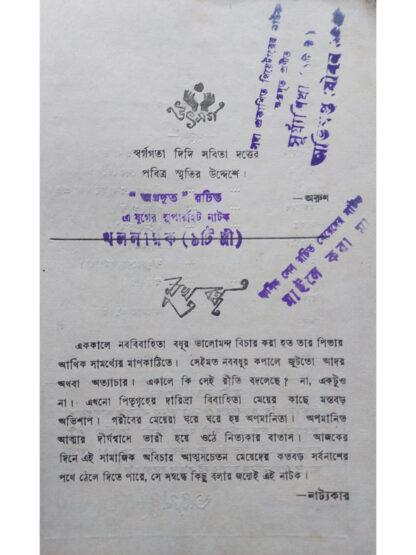 উৎসর্গ
স্বর্গগতা দিদি সবিতা দত্তের
পবিত্র স্মৃতির উদ্দেশে।
— অরুণ
"অগ্রদূত" রচিত
এ যুগের সুপারহিট নাটক
খলনায়ক (১টি স্ত্রী)
মুখবন্ধ
এককালে নববিবাহিতা বধূর ভালোমন্দ বিচার করা হত তার পিতার
আর্থিক সামর্থ্যের মাপকাঠিতে। সেইমত নববধূর কপালে জুটতো আদর
অথবা অত্যাচার। একালে কি সেই রীতি বদলেছে? না, একটুও
না। এখনো পিতৃগৃহের দারিদ্র্য বিবাহিতা মেয়ের কাছে মস্তবড়
অভিশাপ। গরীবের মেয়েরা ঘরে ঘরে হয় অপমানিতা। অপমানিত
আত্মার দীর্ঘশ্বাসে ভারী হয়ে ওঠে নিত্যকার বাতাস। আজকের
দিনে এই সামাজিক অবিচার আত্মসচেতন মেয়েদের কতবড় সর্বনাশের
পথে ঠেলে দিতে পারে, সে সম্বন্ধে কিছু বলার জন্যেই এই নাটক।
—নাট্যকার
সদ্য প্রকাশিত থিয়েটারের নাটক
অগ্রদূত প্রণীত
সূর্যশিখা
অভিশপ্ত যৌবন
সেন রচিত মেয়েদের নাটক
মাইনে করা মা